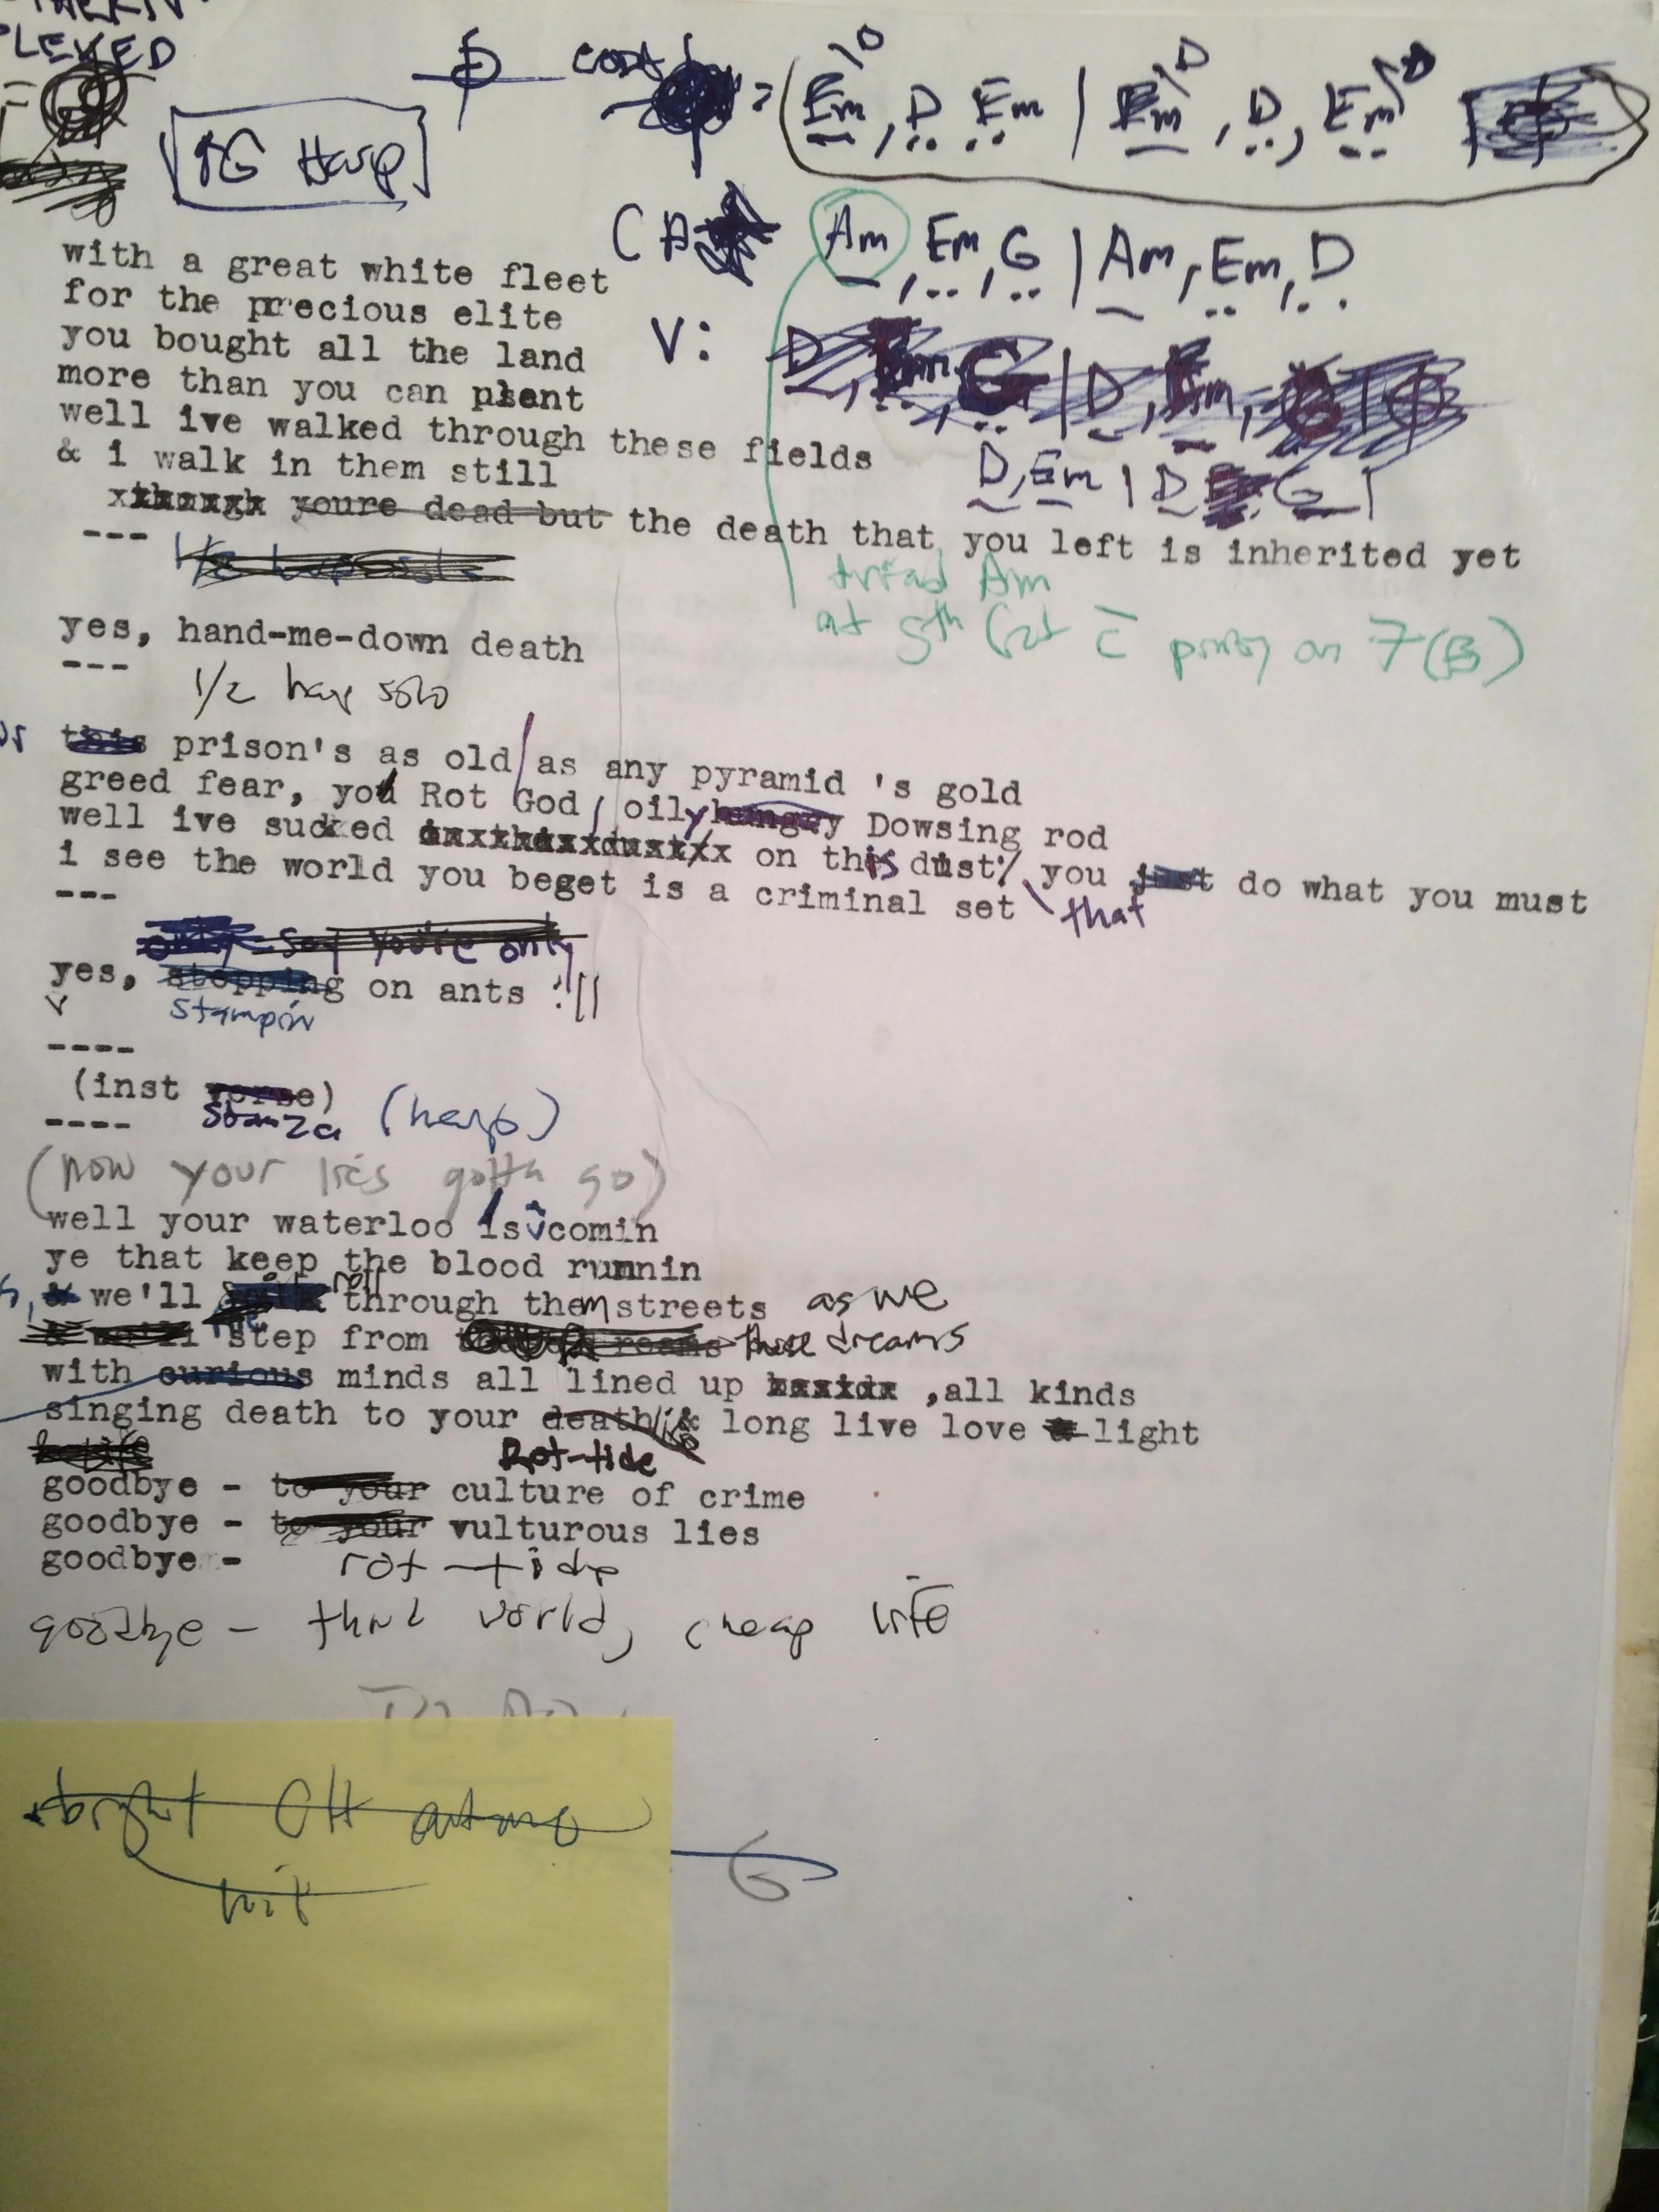 LEVED
CODA = (Em\D, D, Em | Em\D, D, Em\D
[G Harp]
Am, Em, G | Am, Em, D
with a great white fleet
for the precious elite
V:
you bought all the land
more than you can plant
well ive walked through these fields
& i walk in them still
D, Em | D G |
youre dead but the death that you left is inherited yet
---
1/2 harp solo
triad Am
at 5th
on 7 (B)
yes, hand-me-down death
---
1/2 harp solo
this prison's as old / as any pyramid 's gold
greed fear, you Rot God / oily hungry Dowsing rod
well ive sucked on this dust, you just do what you must
i see the world you beget is a criminal set \ that
---
only say you're only
yes, stepping on ants :||
stampin
----
(inst verse)
stanza (harp)
----
(now your lies gotta go)
well your waterloo is comin
ye that keep the blood runnin
& we'll roll through them streets as we
step from these dreams
with curious minds all lined up ,all kinds
singing death to your death/life & long live love & light
Rot-tide
goodbye - to your culture of crime
goodbye - to your vulturous lies
goodbye - rot-tide
goodbye - third world, cheap life
TO DO:
bright CH
G